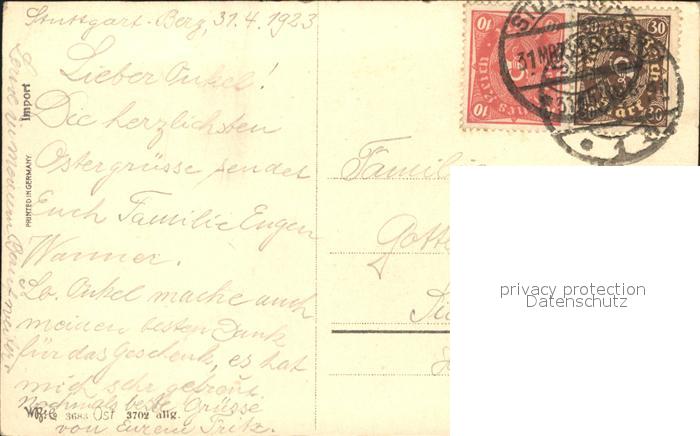 Stuttgart-Berg, 31.4.1923
Lieber Onkel!
Die herzlichsten
Ostergrüsse sendet
Euch Familie Eugen
Wanner.
Lb. Onkel mache auch
meinen besten Dank
für das Geschenk, es hat
mich sehr gefreut.
Nochmals beste Grüsse
von Eurem Fritz.
Import
PRINTED IN GERMANY
3683 Ost 3702 allg.
Famili
Gotte
10
10
30
30
privacy protection
Datenschutz